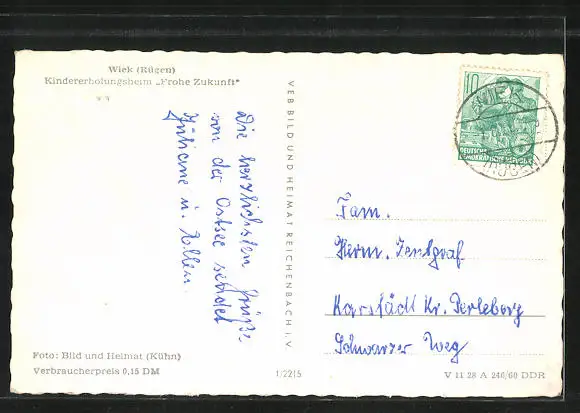 Wiek (Rügen)
Kindererholungsheim „Frohe Zukunft"
Die herzlichsten Grüße
von der Ostsee sendet
Juliane u. Ellen.
VEB BILD UND HEIMAT REICHENBACH i. V
10
DEUTSCHE
DEMOKRATISCHE REPUBLIK
WIEK
(RÜGEN)
Fam.
Herm. Zentgraf
Karstädt Kr. Perleberg
Schwarzer Weg
Foto: Bild und Heimat (Kühn)
Verbraucherpreis 0,15 DM
1/2215
V 11 28 A 240/60 DDR